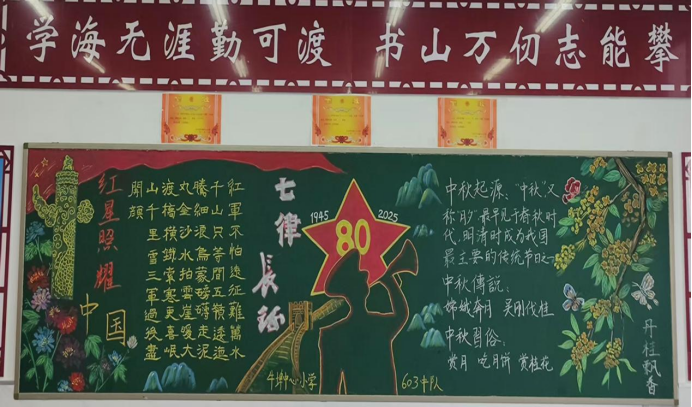 学海无涯勤可渡 书山万仞志能攀
红星照耀
中国
紅軍不怕遠征難萬水
千山只等閒五嶺逶迤
騰細浪烏蒙磅礴走泥
丸金沙水拍雲崖暖大
渡橋橫鐵索寒更喜岷
山千里雪三軍過後盡
開顏
七律
长征
1945 2025
80
中心小学
603中队
中秋起源："中秋"又
称"月夕"最早见于春秋时
代，明清时成为我国
最主要的传统节日
中秋傳説：
嫦娥奔月 吴刚伐桂
中秋習俗：
赏月 吃月饼 赏桂花
丹桂飘香